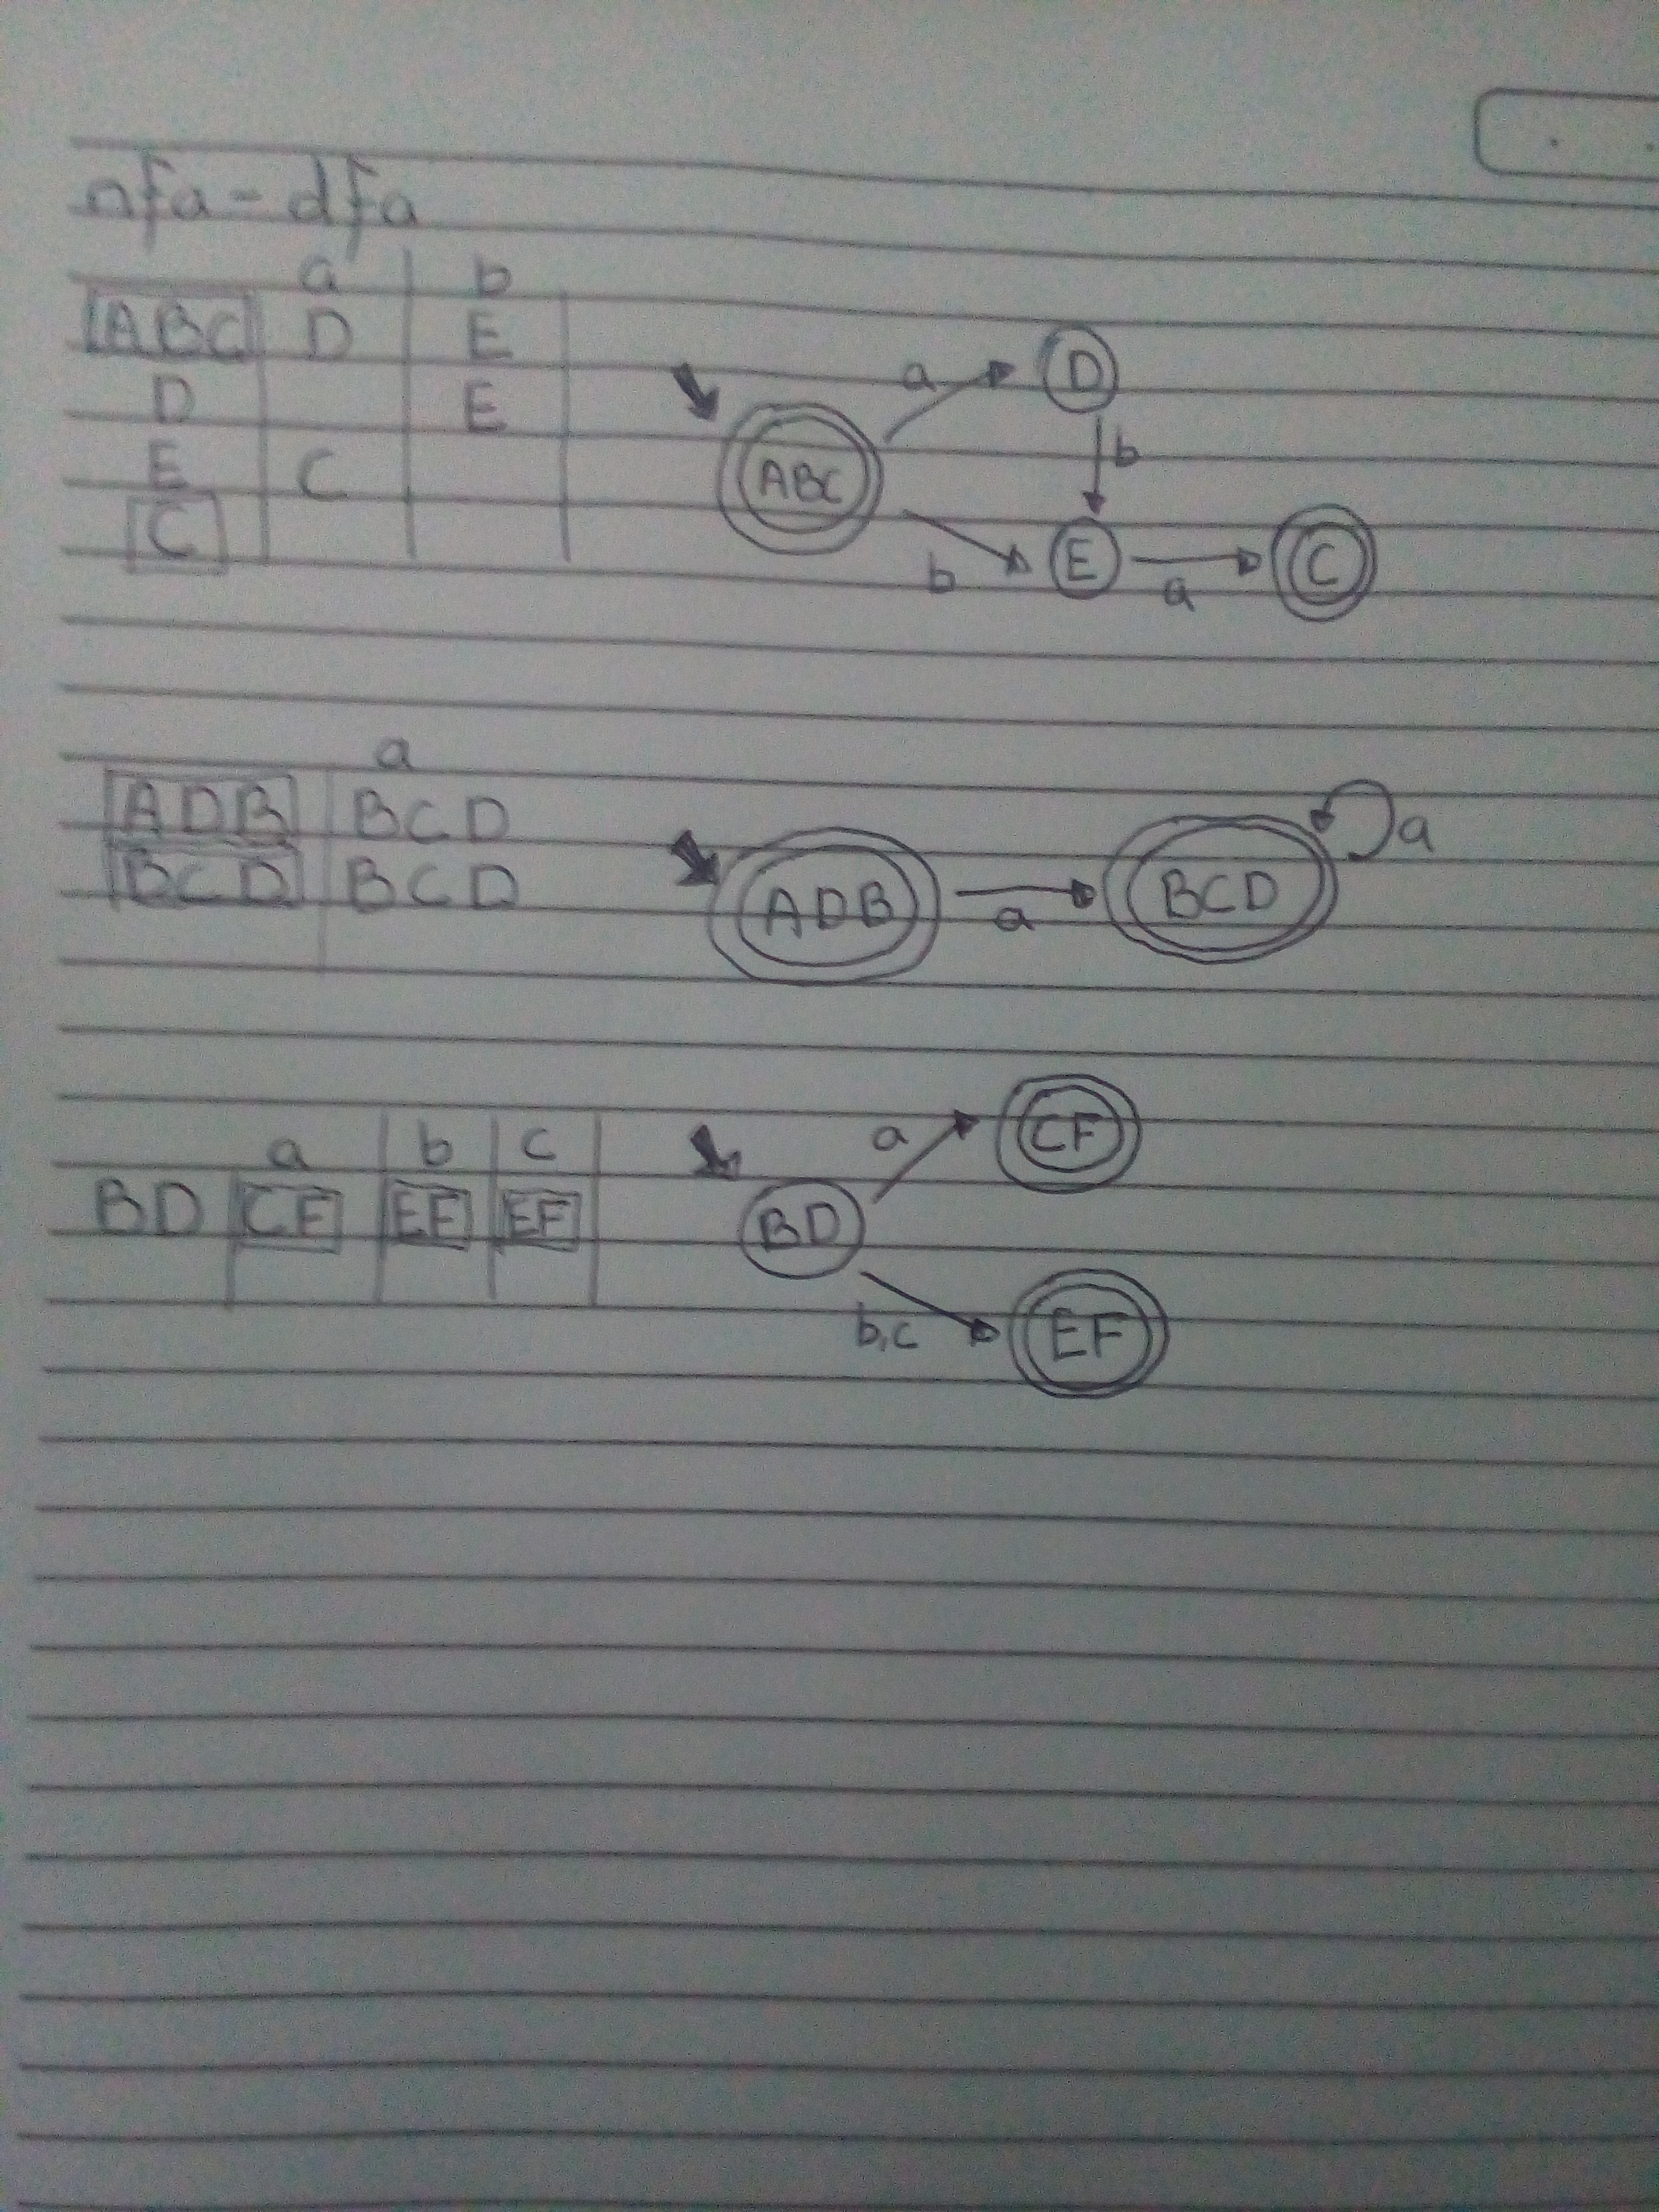 nfa - dfa
a b
ABC D E
D E
E C
C
a D
ABC b
b E a C
a
ADB BCD
BCD BCD
ADB a BCD a
a b c
BD CF EF EF
a CF
BD
b,c EF